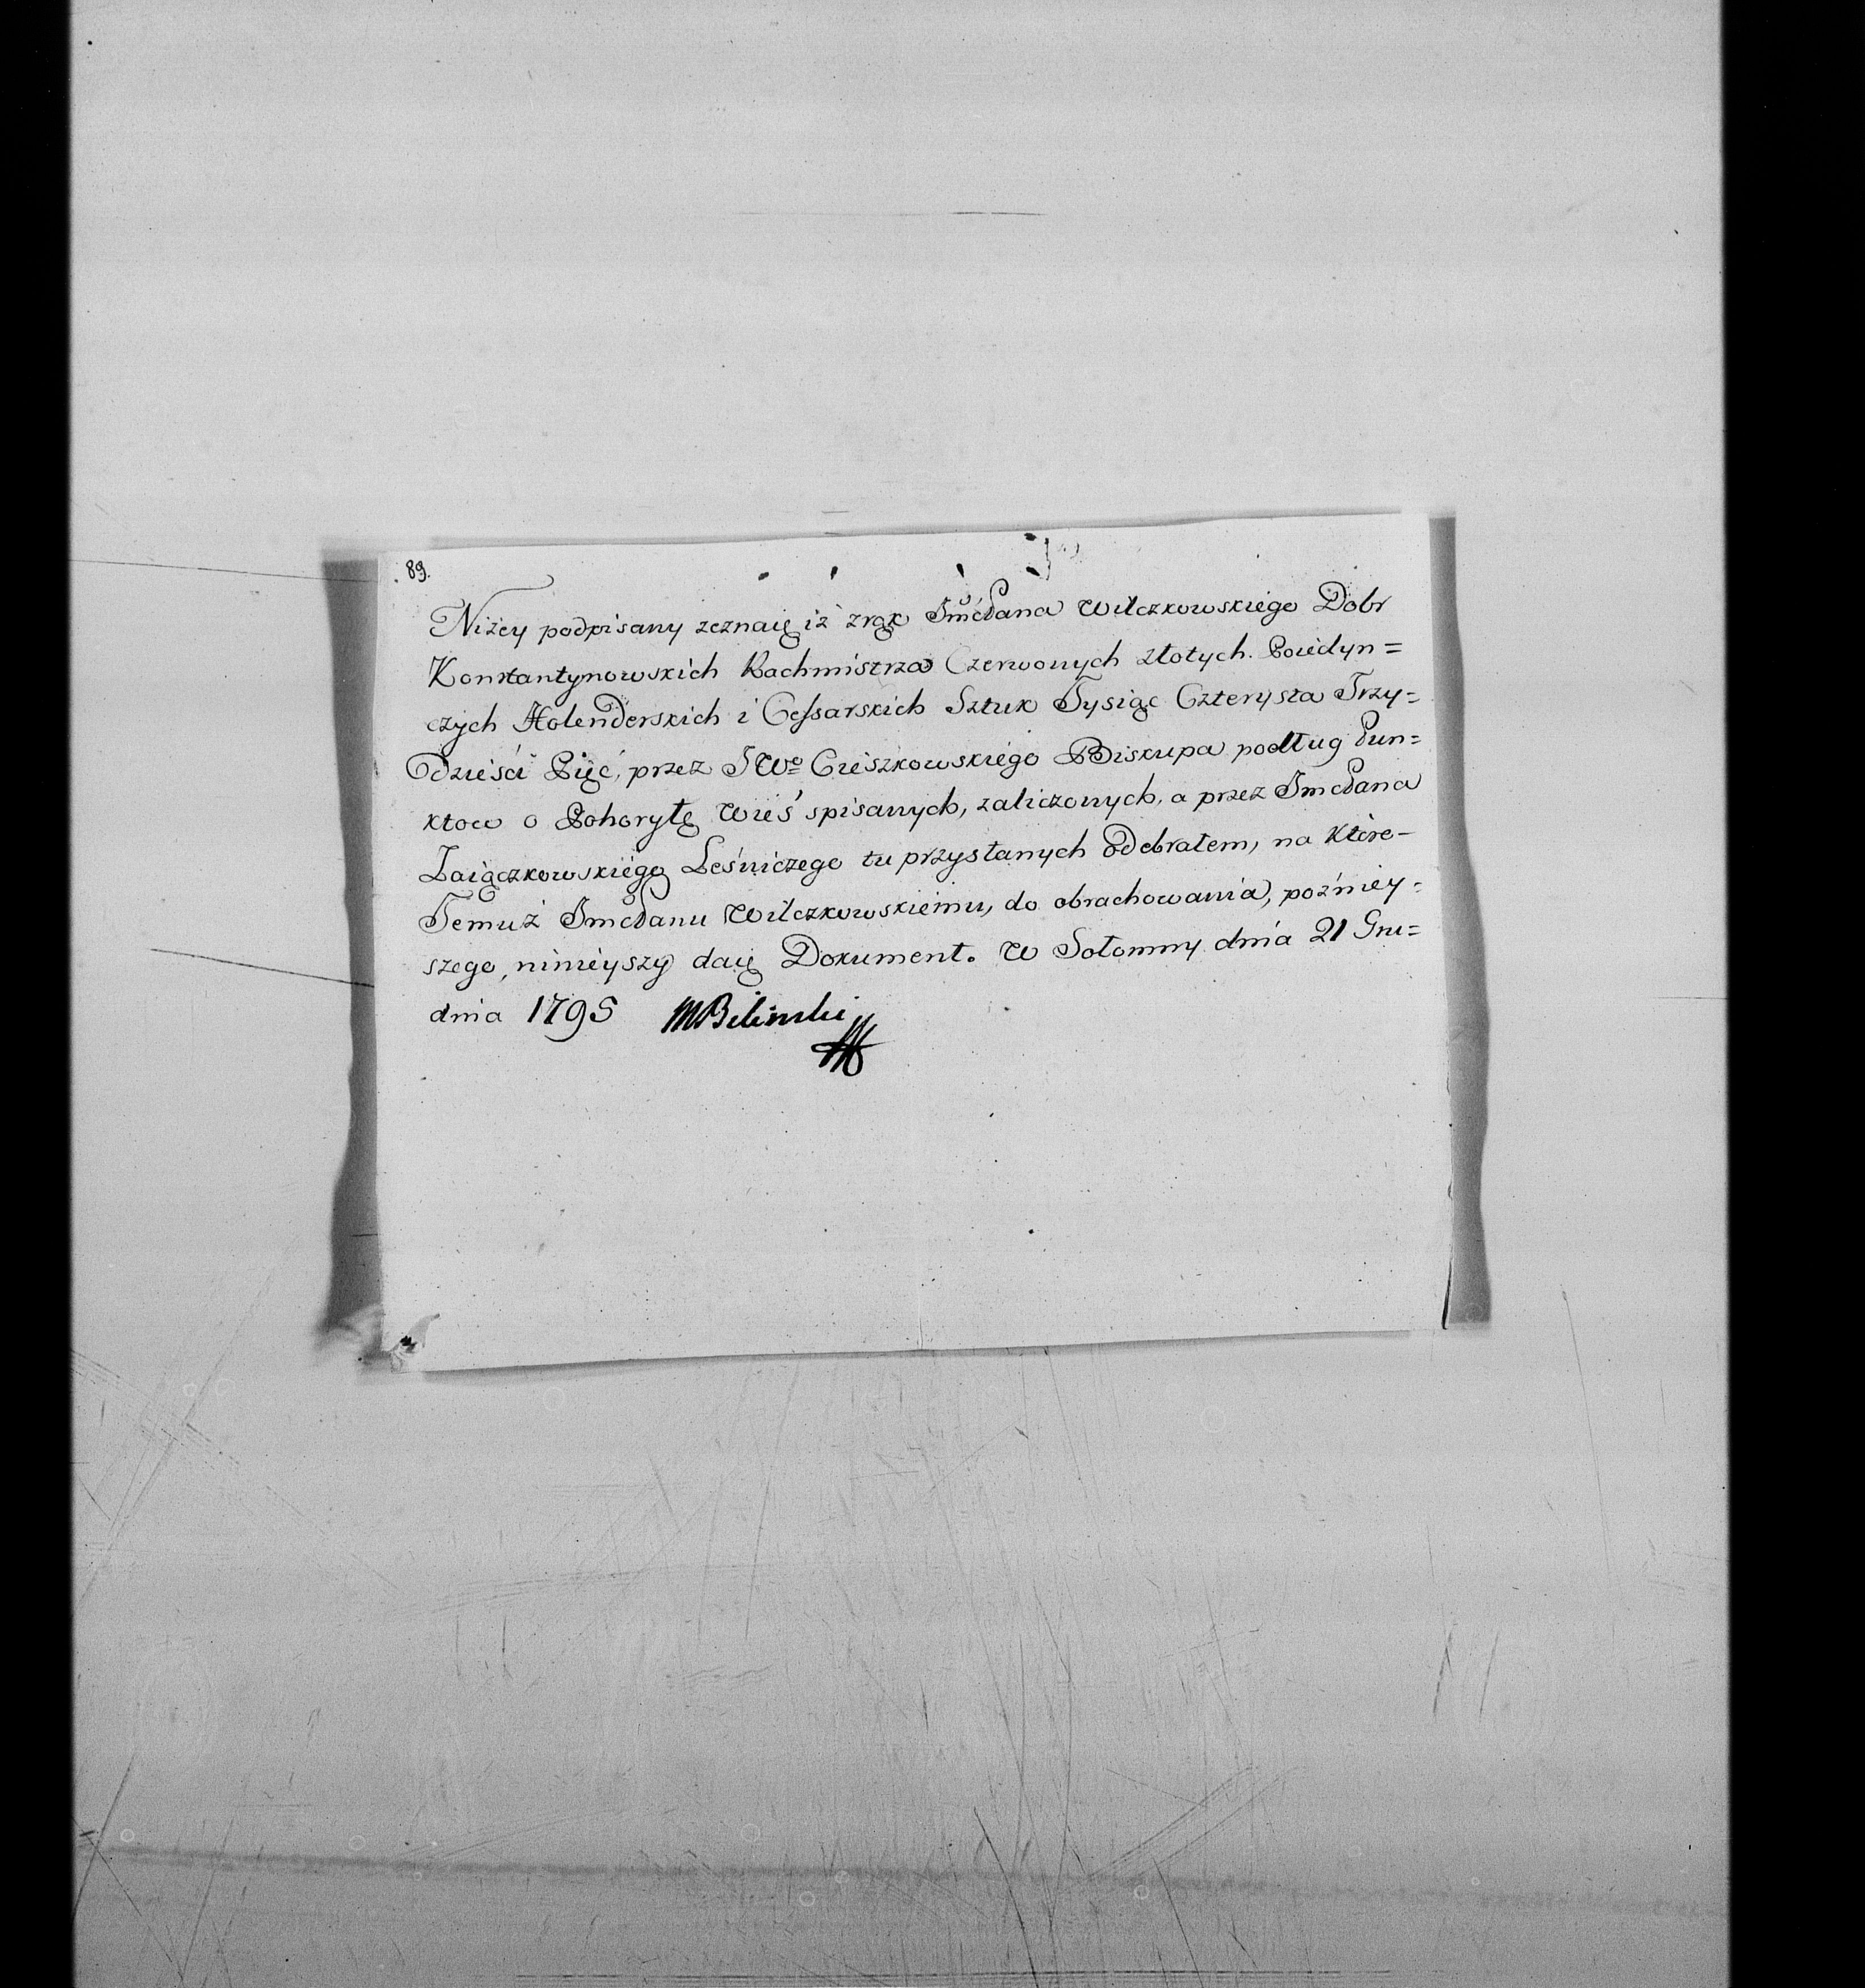 89.
Niżey podpisany zeznaię iż zrąk JmćPana Wilczkowskiego Dobr
Konstantynowskich Rachmistrza Czerwonych złotych Poiedyn=
czych Holenderskich i Cessarskich Sztuk Tysiąc Czterysta Trzy=
dzieści Pięć, przez JWo Cieszkowskiego Biskupa podług Pun=
ktow o Pohoryłę Wieś spisanych, zaliczonych, a przez JmcPana
Zaiączkowskiego Leśniczego tu przysłanych Odebrałem, na które-
Temuż JmcPanu Wilczkowskiemu, do obrachowania, poźniey=
szego, ninieyszy daię Dokument. W Sołomny dnia 21 Gru=
dnia 1795 MBilinski